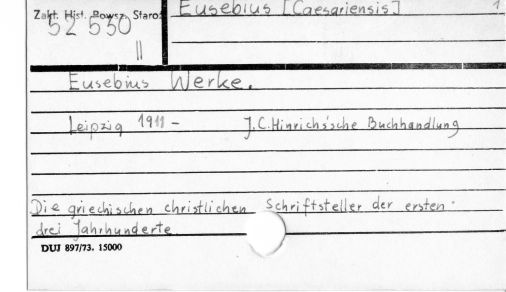 Zakł. Hist. Powsz. Staroż. Eusebius [Caesariensis] 1
52 550
II
Eusebius Werke.
Leipzig 1911 - J.C.Hinrichs'sche Buchhandlung
Die griechischen christlichen Schriftsteller der ersten
drei Jahrhunderte
DUJ 897/73. 15000